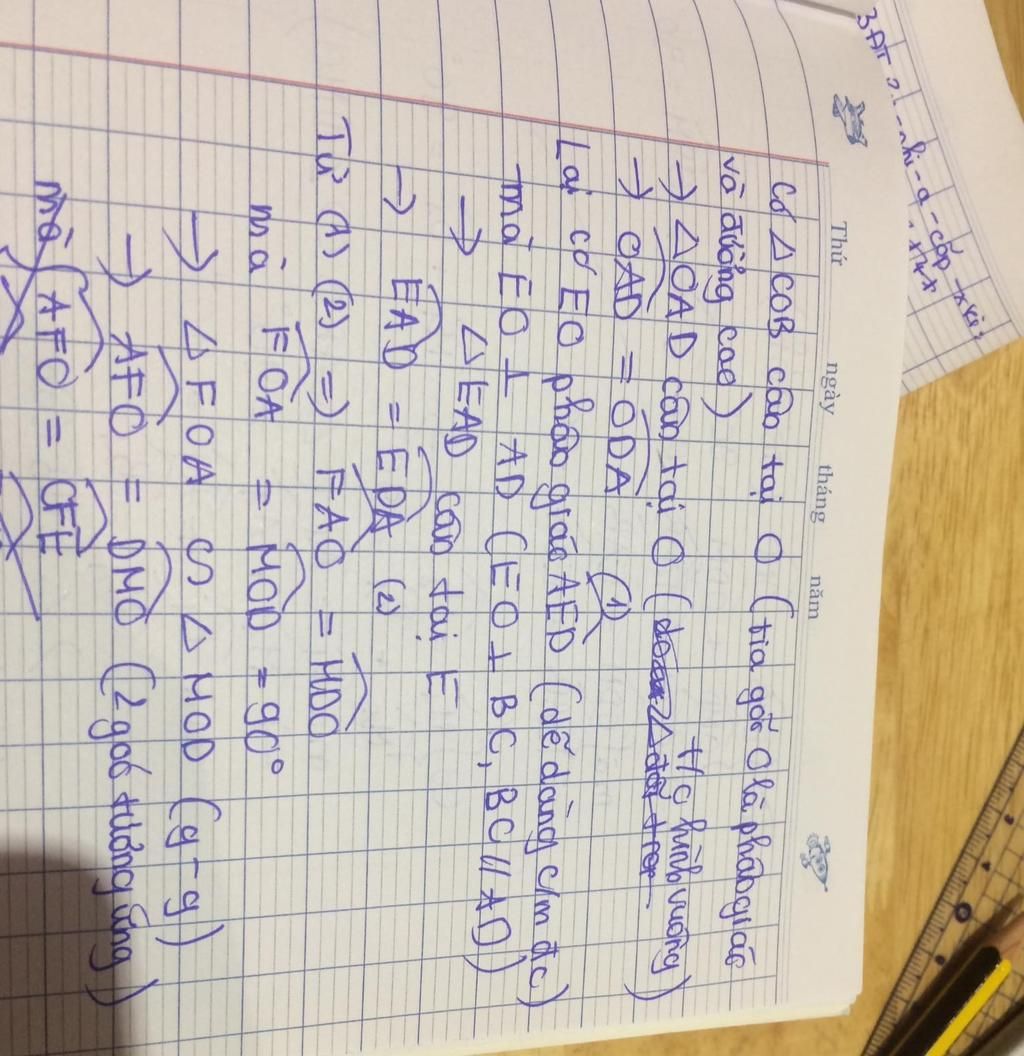 Thứ ngày tháng năm
Có △COB cân tại O (tia gốc O là phân giác
và đường cao)
→ △OAD cân tại O (t/c hình vuông)
→ OAD = ODA (1)
Lại có EO phân giác AED (dễ dàng c/m đc)
mà EO ⊥ AD (EO ⊥ BC, BC // AD)
→ △EAD cân tại E
→ EAD = EDA (2)
Từ (1) (2) => FAO = MDO
mà FOA = MOD = 90°
→ △FOA S △MOD (g-g)
→ AFO = DMO (2 góc tương ứng)
mà AFO = CFE